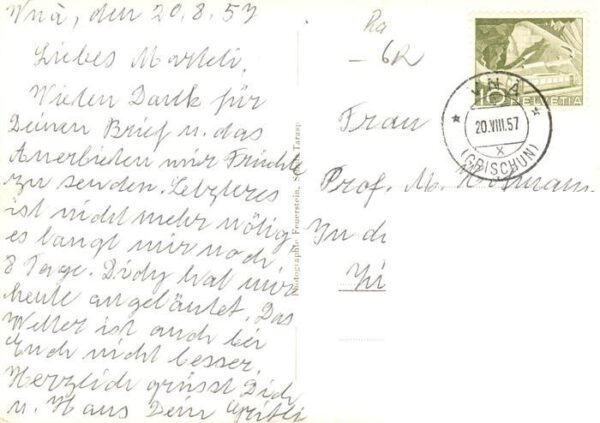 Vnà, den 20.8.57
Liebes Marteli,
Vielen Dank für
Deinen Brief u. das
Anerbieten mir Früchte
zu senden. Letzteres
ist nicht mehr nötig
es langt mir noch
8 Tage. Didy hat mir
heute angeläutet. Das
Wetter ist auch bei
Euch nicht besser.
Herzlich grüsst Dich
u. Hans Dein Gritli
Photographie Feuerstein, Tarasp
6R
10
HELVETIA
VNÀ
20.VIII.57
X
(GRISCHUN)
Frau
Prof. M.
In d